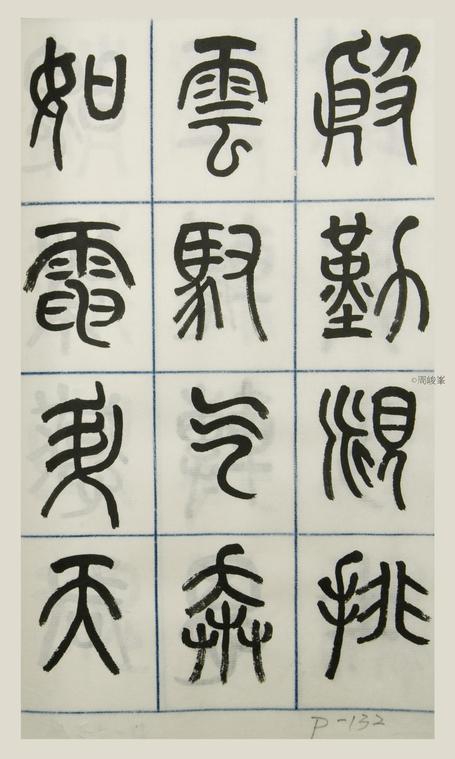 殷勤覓排
雲馭气奔
如電升天
P-132
©周峻峯